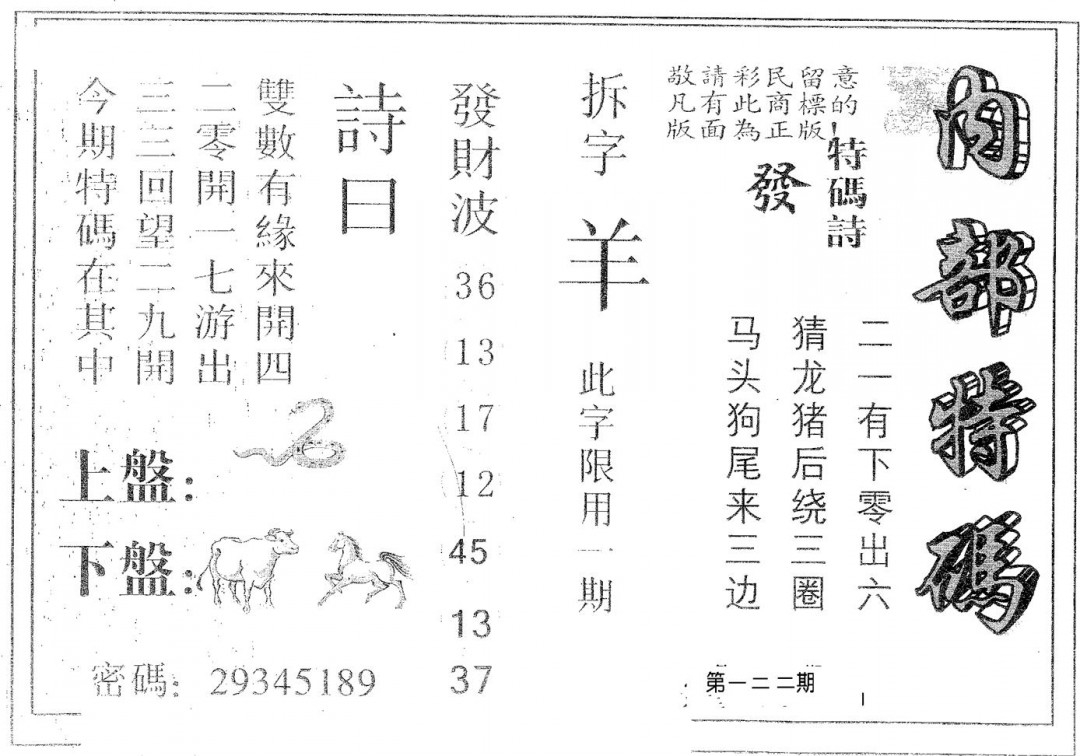 內部特碼
敬請彩民留意
凡有此商標的
版面為正版
特碼詩
發
二一有下零出六
猜龙猪后绕三圈
马头狗尾来三边
第一二二期
拆字
羊
此字限用一期
發財波
36
13
17
12
45
13
37
詩曰
雙數有緣來開四
二零開一七游出
三三回望二九開
今期特碼在其中
上盤:
下盤:
密碼: 29345189